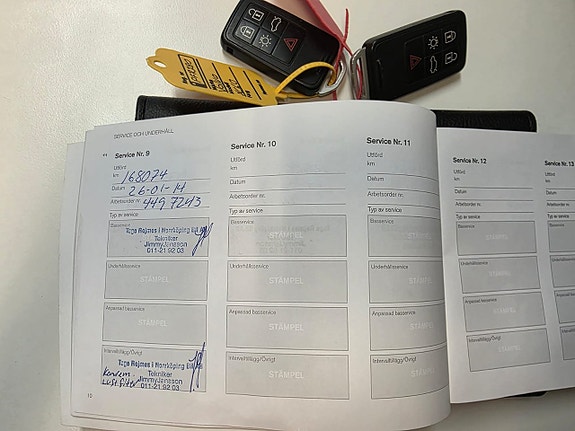 SERVICE OCH UNDERHÅLL
Service Nr. 9
Utförd
km 168074
Datum 26-01-14
Arbetsorder nr. 4497243
Typ av service
Basservice
Tage Rejmes i Norrköping Bil AB
Tekniker
Jimmy Jansson
011-21 92 03
Underhållsservice
STÄMPEL
Anpassad basservice
STÄMPEL
Intervalltillägg/Övrigt
Tage Rejmes i Norrköping Bil AB
Tekniker
Jimmy Jansson
011-21 92 03
10
Service Nr. 10
Utförd
km
Datum
Arbetsorder nr.
Typ av service
Basservice
STÄMPEL
Underhållsservice
STÄMPEL
Anpassad basservice
STÄMPEL
Intervalltillägg/Övrigt
STÄMPEL
Service Nr. 11
Utförd
km
Datum
Arbetsorder nr.
Typ av service
Basservice
STÄMPEL
Underhållsservice
STÄMPEL
Anpassad basservice
STÄMPEL
Intervalltillägg/Övrigt
STÄMPEL
Service Nr. 12
Utförd
km
Datum
Arbetsorder nr.
Typ av service
Basservice
STÄMPEL
Underhållsservice
STÄMPEL
Anpassad basservice
STÄMPEL
Intervalltillägg/Övrigt
STÄMPEL
Service Nr. 13
Utförd
km
Datum